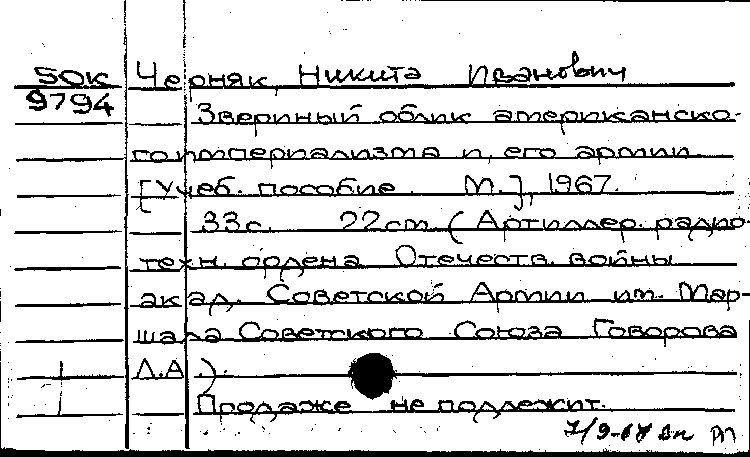 50К Черняк, Никита Иванович
9794 Звериный облик американско-
го империализма и его армии
[Учеб. пособие. М.], 1967.
33с. 22см (Артиллер. радио-
техн. ордена Отечеств. войны
акад. Советской Армии им. Мар-
шала Советского Союза Говорова
Л.А.).
Продаже не подлежит.